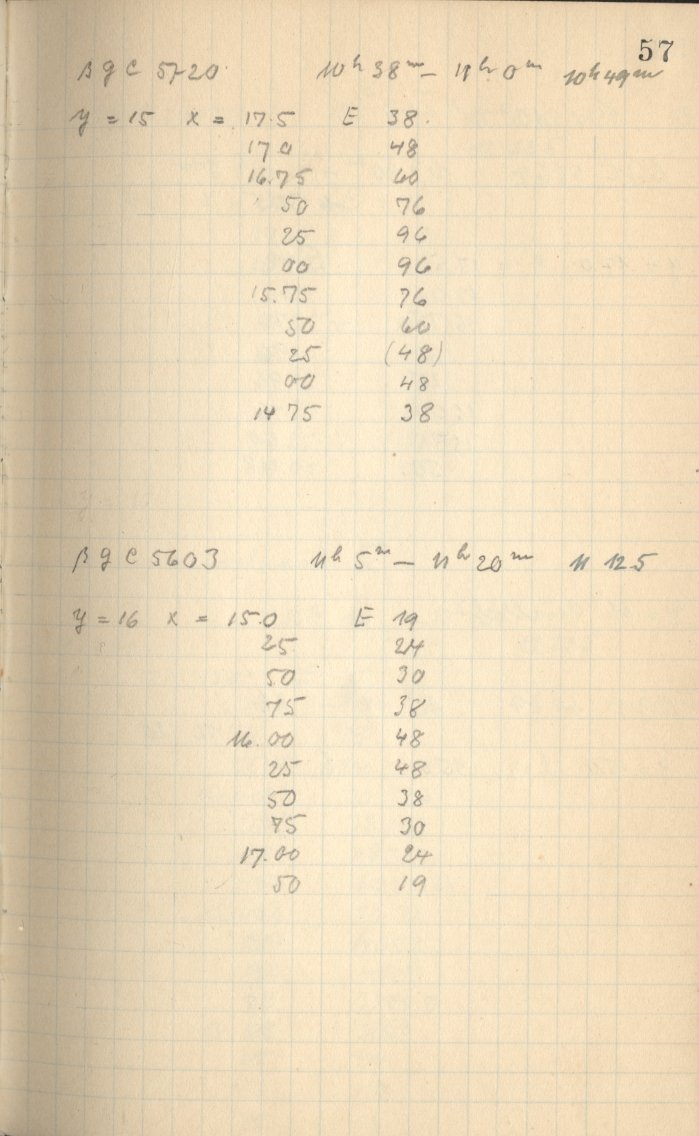 57
β G C 5720 10h 38m – 11h 0m 10h 49m
y = 15 x = 17.5 E 38.
17 0 48
16.75 60
50 76
25 96
00 96
15.75 76
50 60
25 (48)
00 48
14 75 38
β G C 5603 11h 5m – 11h 20m 11 12.5
y = 16 x = 15.0 E 19
25 24
50 30
75 38
16.00 48
25 48
50 38
75 30
17.00 24
50 19